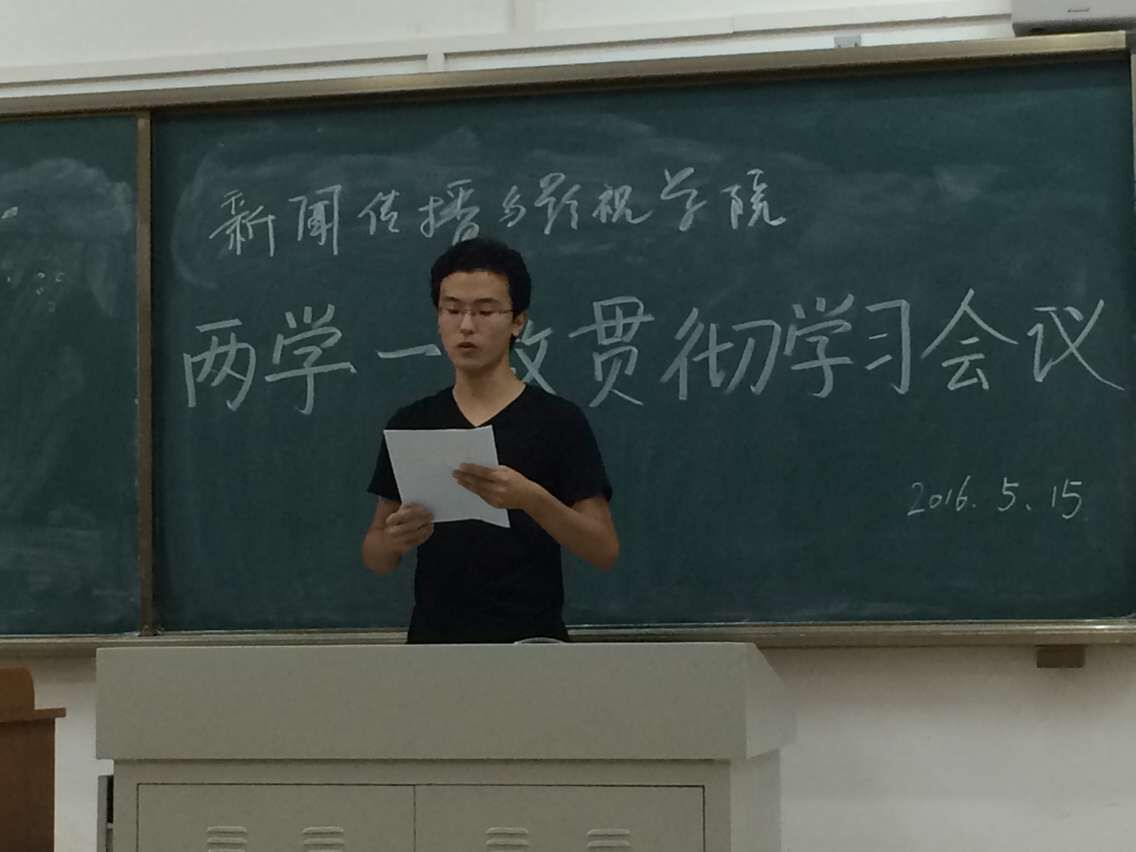 新闻传播与影视学院
两学一做贯彻学习会议
2016.5.15